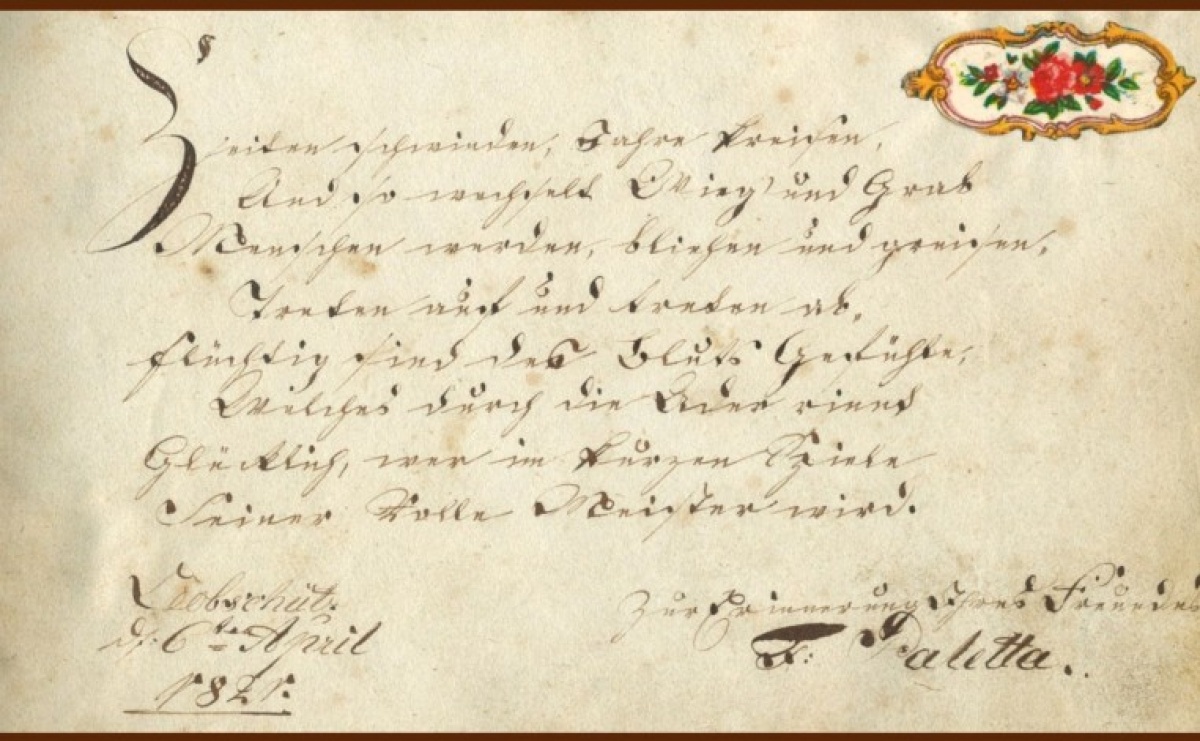 Zeiten schwinden, Jahre kreisen,
Und so wechselt Wieg' und Grab
Menschen werden, bliehen und greisen,
Treten auf und treten ab.
Flüchtig sind des Bluts Gefühle,
Welches durch die Ader rinnt
Glücklich, wer im kurzen Spiele
Seiner Rolle Meister wird.
Leobschütz
d: 6ten April
1821.
Zur Erinnerung Ihres Freundes
F: Paletta.